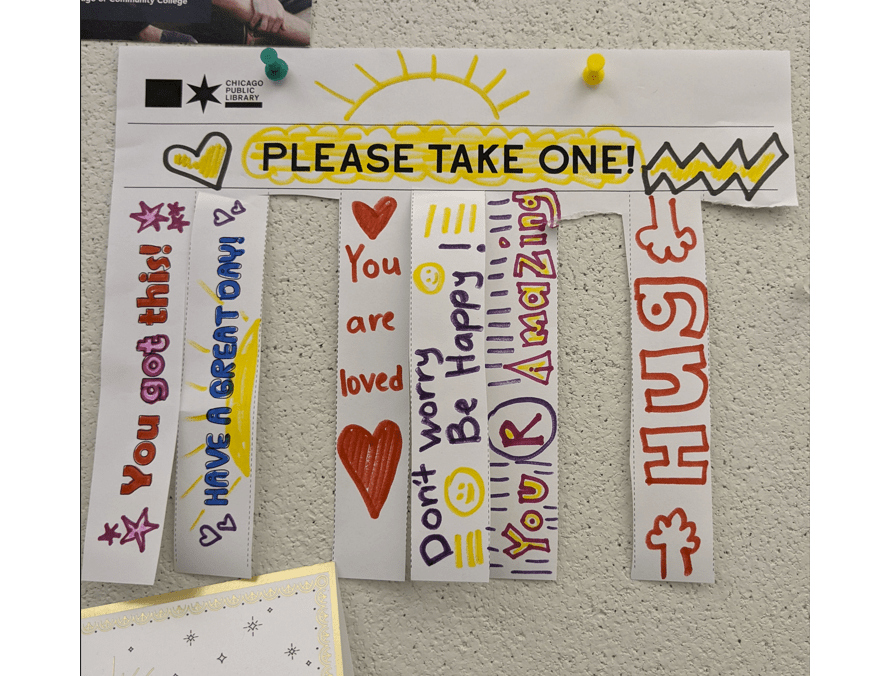 CHICAGO
PUBLIC
LIBRARY
PLEASE TAKE ONE!
You got this!
HAVE A GREAT DAY!
You
are
loved
Don't worry
Be Happy!
You R Amazing
Hug